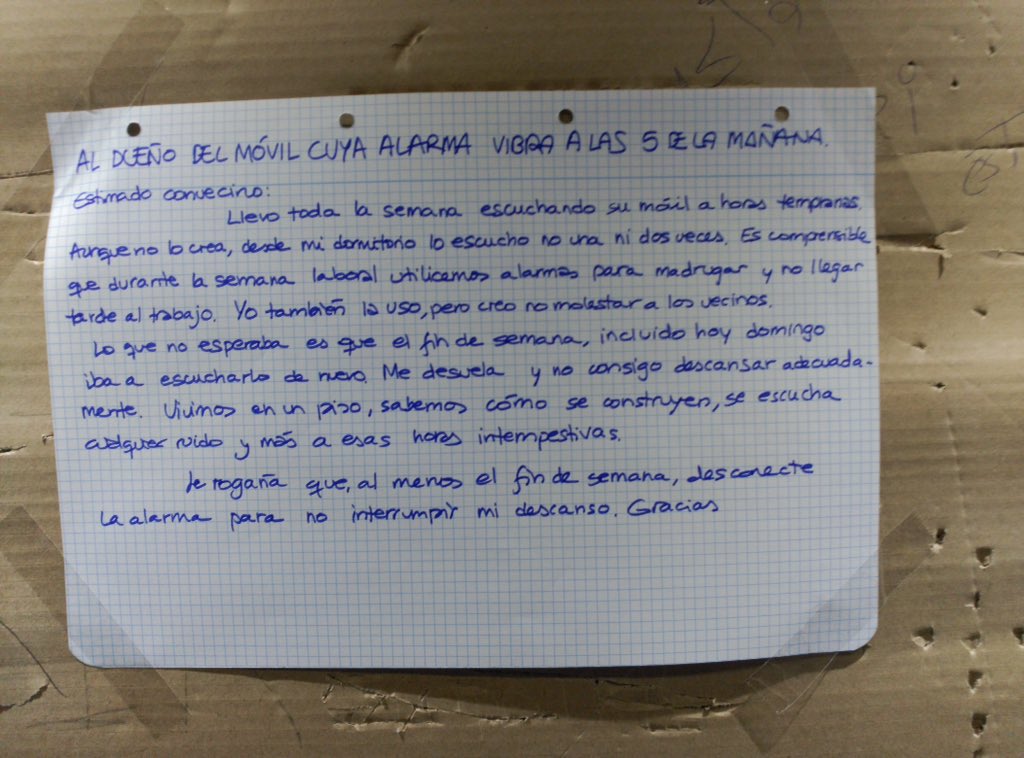 AL DUEÑO DEL MÓVIL CUYA ALARMA VIBRA A LAS 5 DE LA MAÑANA.
Estimado convecino:
Llevo toda la semana escuchando su móvil a horas tempranas.
Aunque no lo crea, desde mi dormitorio lo escucho no una ni dos veces. Es comprensible
que durante la semana laboral utilicemos alarmas para madrugar y no llegar
tarde al trabajo. Yo también la uso, pero creo no molestar a los vecinos.
Lo que no esperaba es que el fin de semana, incluido hoy domingo
iba a escucharlo de nuevo. Me desvela y no consigo descansar adecuada-
mente. Vivimos en un piso, sabemos cómo se construyen, se escucha
cualquier ruido y más a esas horas intempestivas.
Le rogaría que, al menos el fin de semana, desconecte
la alarma para no interrumpir mi descanso. Gracias